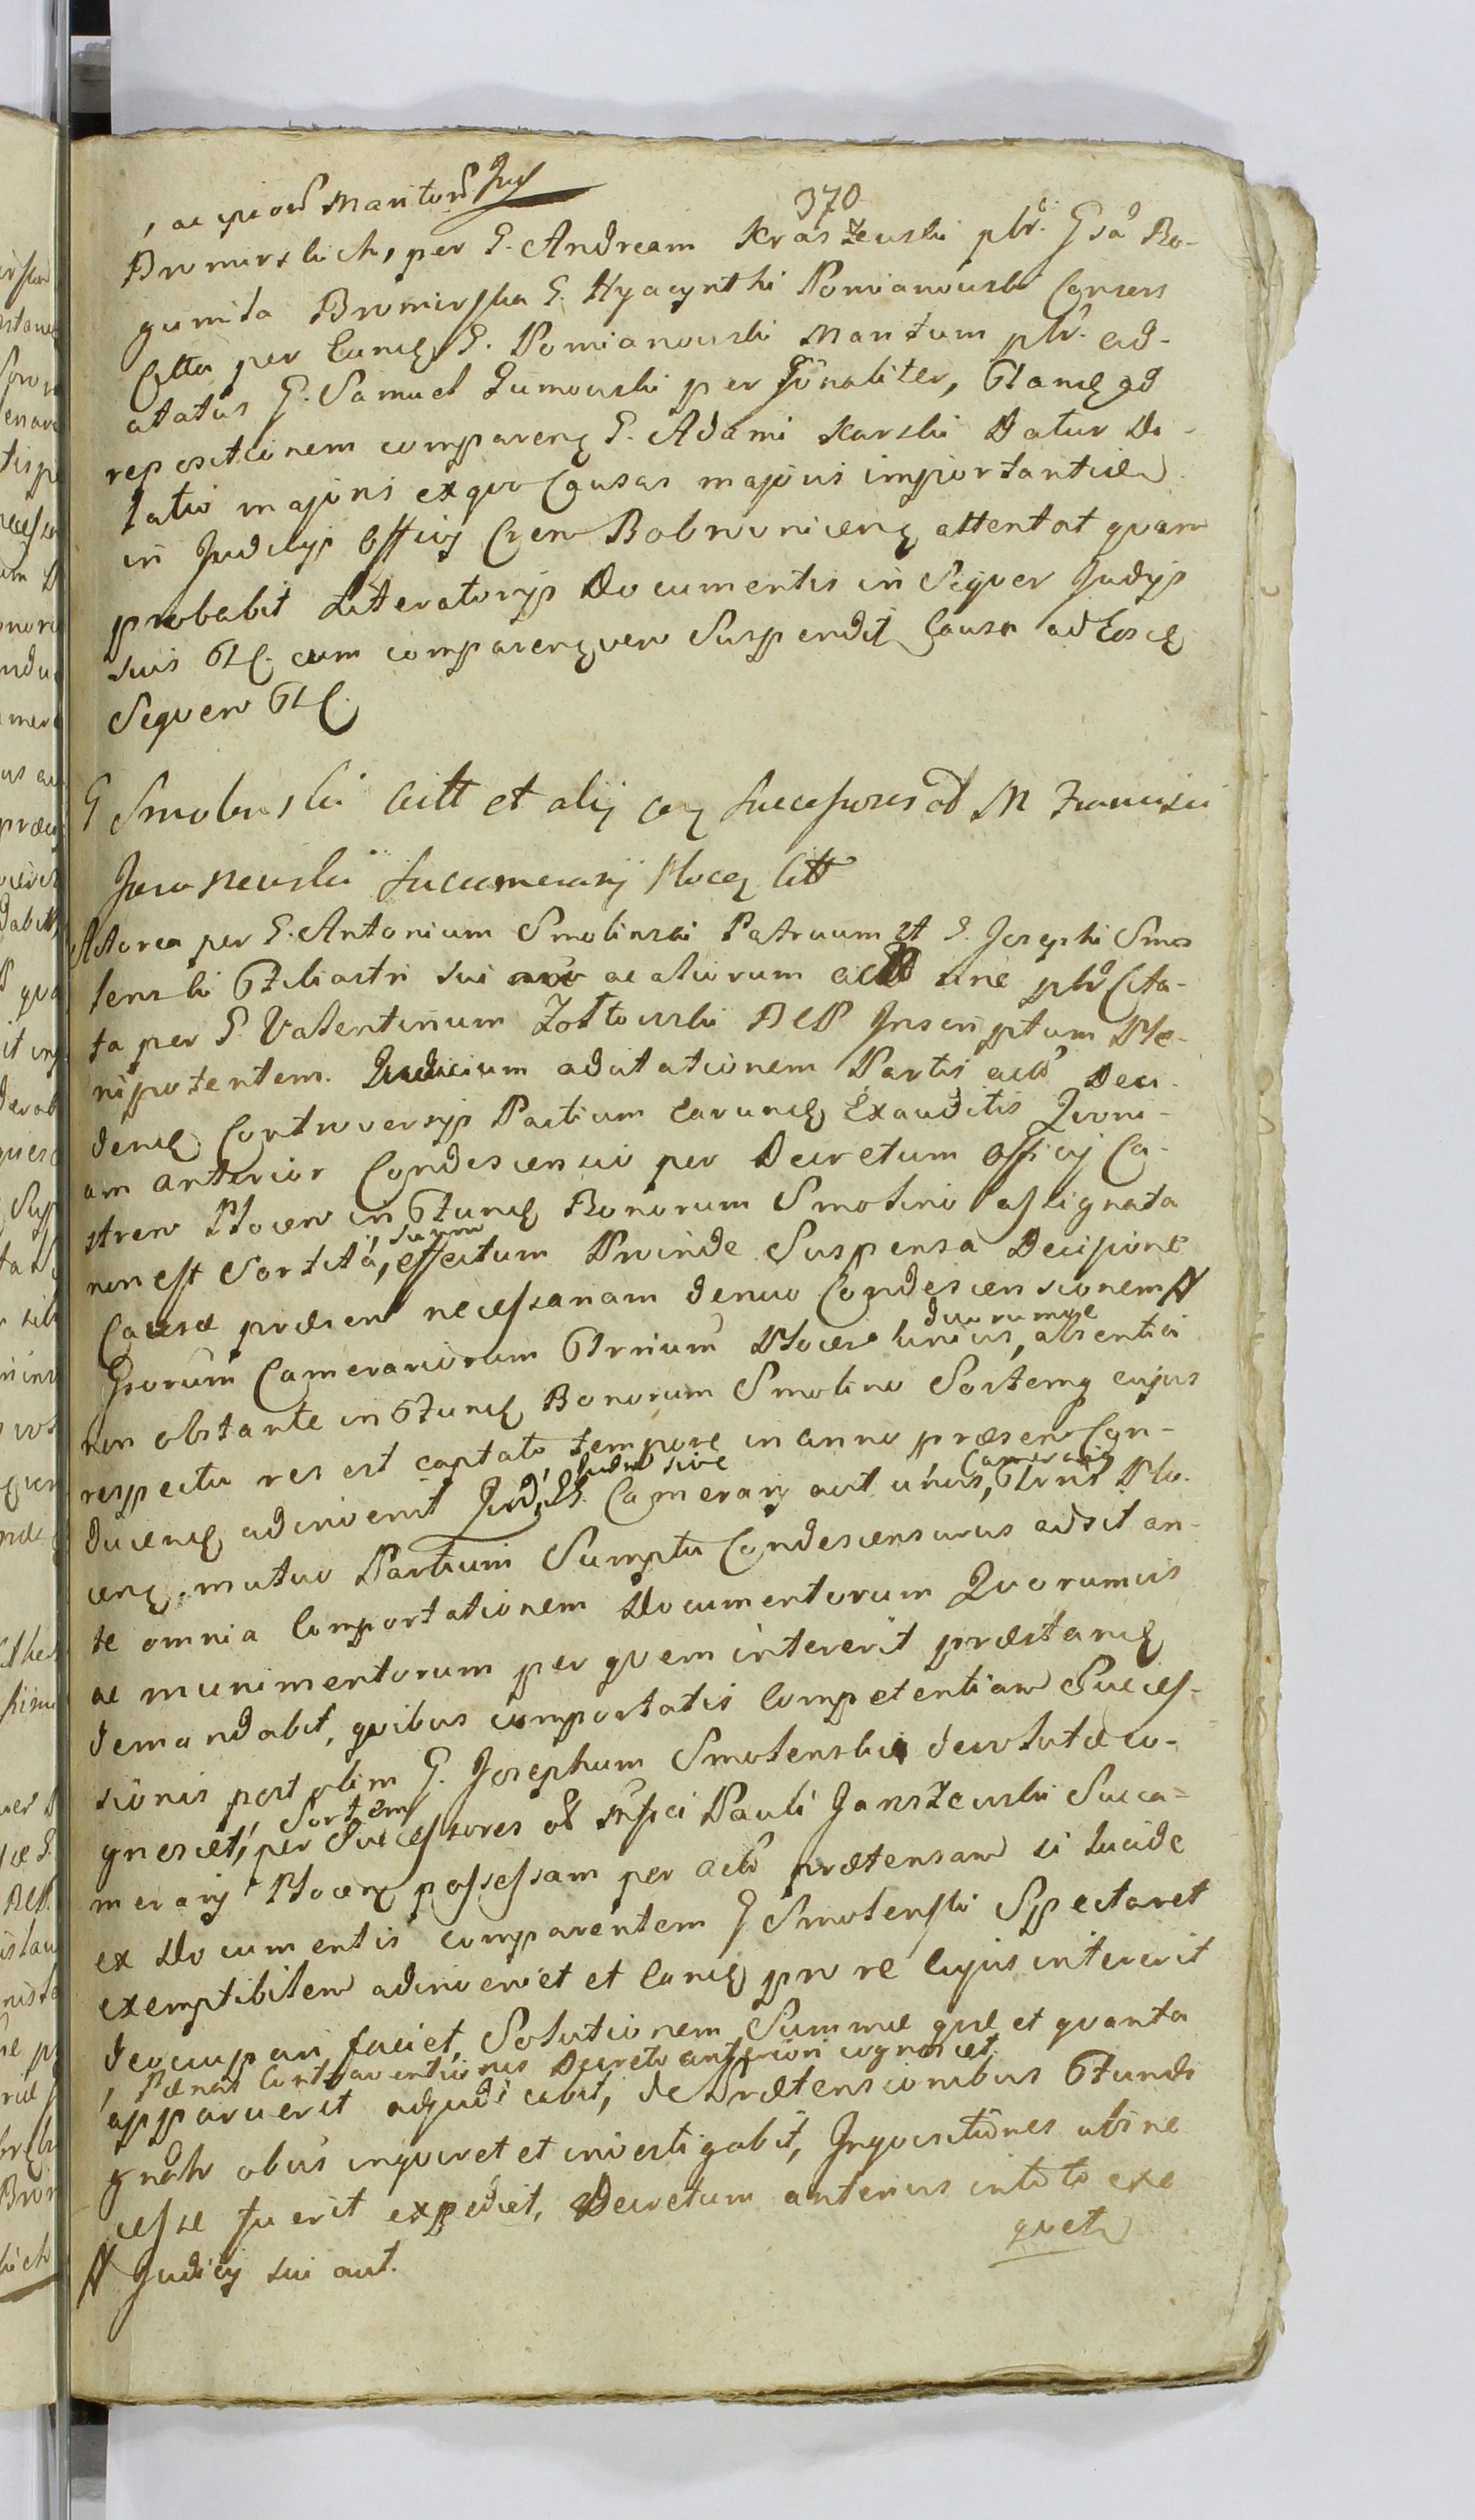 370
, ac ipsor Maritor
Bromirskich, per G. Andream Kraszewski plr. Gsa Bo-
gumila Bromirska G. Hyacynthi Pomianowski Consors
Citta per Eundq G. Pomianowski Maritum plr. ad-
atatus G. Samuel Gumowski personaliter, Hancq ad
repositionem comparenq G. Adami Karski Datur Di-
latio majoris exquo Causas majoris importantiæ
in Judicijs Officij Cren Bobrovniceng attentat quam
probabit Literatorijs Documentis in Sequer Judijs
suis HC. cum comparenq vero Suspendit Causa ad Eosq
Sequen HC.
G Smolenski Citt et alij Successores ob M Francisci
Jaroszewski Succamerarij Plocen Citt
Actorea per G. Antonium Smolinski Patruum et G. Josephi Smo
lenski Filiastri sui ac aliorum act sine plr Cita-
ta per G. Valentinum Zoltowski REP Inscriptum Ple-
nipotentem. Judicium ad citationem Partis act Deci-
denq Controversijs Partium earunq Exauditis Quoni-
am anterior Condescensio per Decretum Officij Ca-
stren Plocen in Funq Bonorum Smolino assignata
non est Sortita, , suum
effectum Proinde Suspensa Decisione
Causæ præsen necessariam denuo Condescensionem #
Gsorum Camerariorum Trrium Plocen unius, , duorumve
absentia
non obstante in Funq Bonorum Smolino Sortemq cujus
respectu res est captato tempore in anno præsen Con-
ducenq adinvenit Jud, , Judm sive
GG. Camerarij aut unus, , Camerarius
Trris Plo-
cenq. mutuo Partium Sumptu Condescensurus adsit an-
te omnia Comportationem Documentorum Quorumvis
ac munimentorum per quem intererit præstanq
demandabit, quibus comportatis Competentiam Succes-
sionis post olim G. Josephum Smolenski devolutæ co-
gnoscet, , Sortem
per Successores ob Mfici Pauli Janszewski Succa-
merarij Plocenq possessam per act prætensam si lucide
ex Documentis comparentem G Smolenski Spectaret
exemptibilem adinveniet et Eanq pro re cujus intererit
deoccupari faciet, Solutionem Summæ quæ et quanta
, Pænas Contraventionis Decreto anteriori cognoscet.
apparuerit adjudicabit, de Prætensionibus Fundi
gnalr obus inquiret et investigabit, Inquisitiones ubi ne
cesse fuerit expediet, Decretum anterius in toto exe
quetr
# Judicij sui aut.